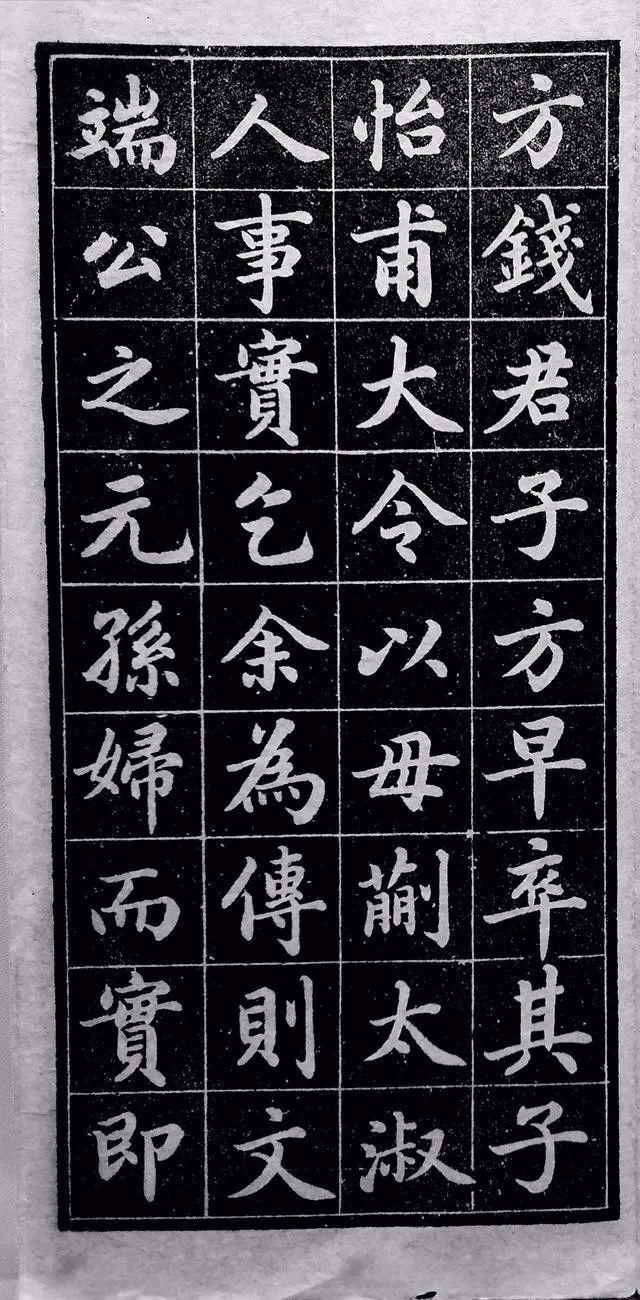 方錢君子方早卒其子
怡甫大令以毋蒯太淑
人事實乞余為傳則文
端公之元孫婦而實即